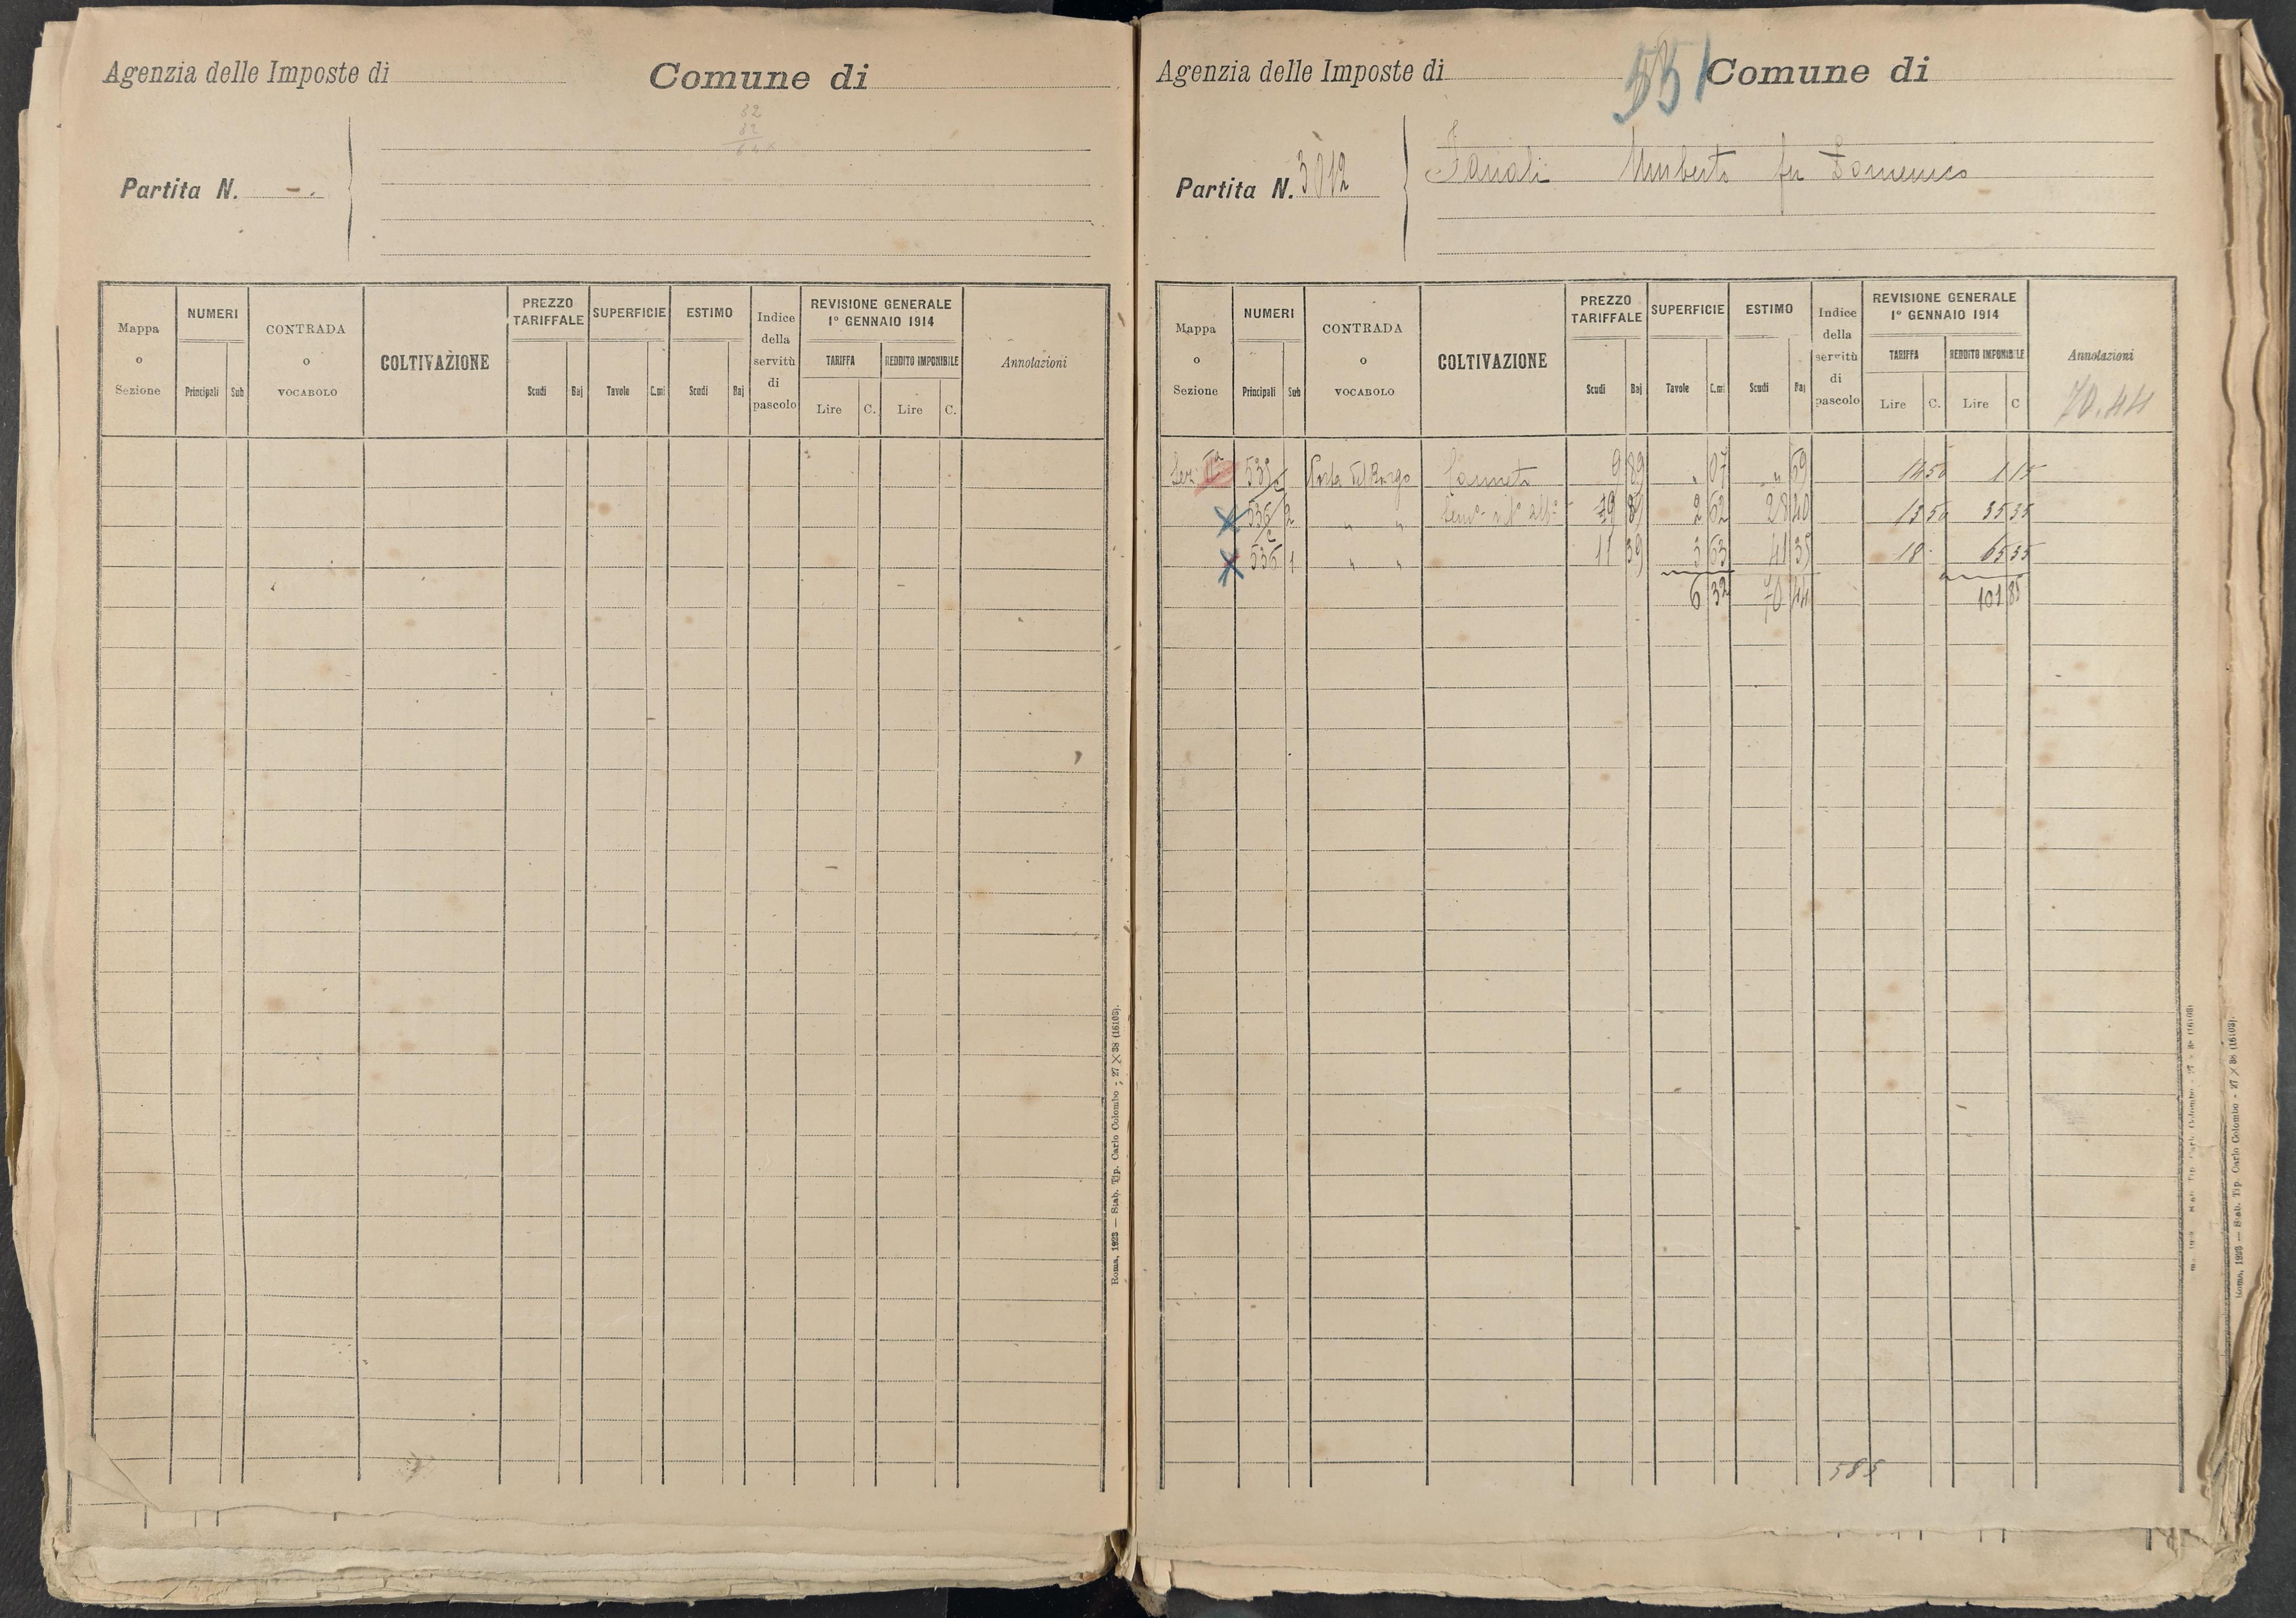 Agenzia delle Imposte di
Comune di
32
32
Partita N. -.
Mappa o Sezione
NUMERI
Principali
Sub
CONTRADA o VOCABOLO
COLTIVAZIONE
PREZZO TARIFFALE
Scudi
Baj
SUPERFICIE
Tavole
C.mi
ESTIMO
Scudi
Baj
Indice della servitù di pascolo
REVISIONE GENERALE
1° GENNAIO 1914
TARIFFA
REDDITO IMPONIBILE
Lire
C.
Lire
C.
Annotazioni
Roma, 1923 — Stab. Tip. Carlo Colombo - 27 × 38 (16103).
Agenzia delle Imposte di
551
Comune di
Partita N. 3012
Umberto fu Domenico
Mappa o Sezione
NUMERI
Principali
Sub
CONTRADA o VOCABOLO
COLTIVAZIONE
PREZZO TARIFFALE
Scudi
Baj
SUPERFICIE
Tavole
C.mi
ESTIMO
Scudi
Baj
Indice della servitù di pascolo
REVISIONE GENERALE
1° GENNAIO 1914
TARIFFA
REDDITO IMPONIBILE
Lire
C.
Lire
C
Annotazioni
70.44
Porta del Borgo Canneto 9 89 " 07 " 69 1 15
2 " " 89 2 62 28 40 13 50 35 35
536 1 " " 11 39 3 63 41 35 18 65 35
6 32 70 44 101 85
585
Roma, 1923 — Stab. Tip. Carlo Colombo - 27 × 38 (16103).